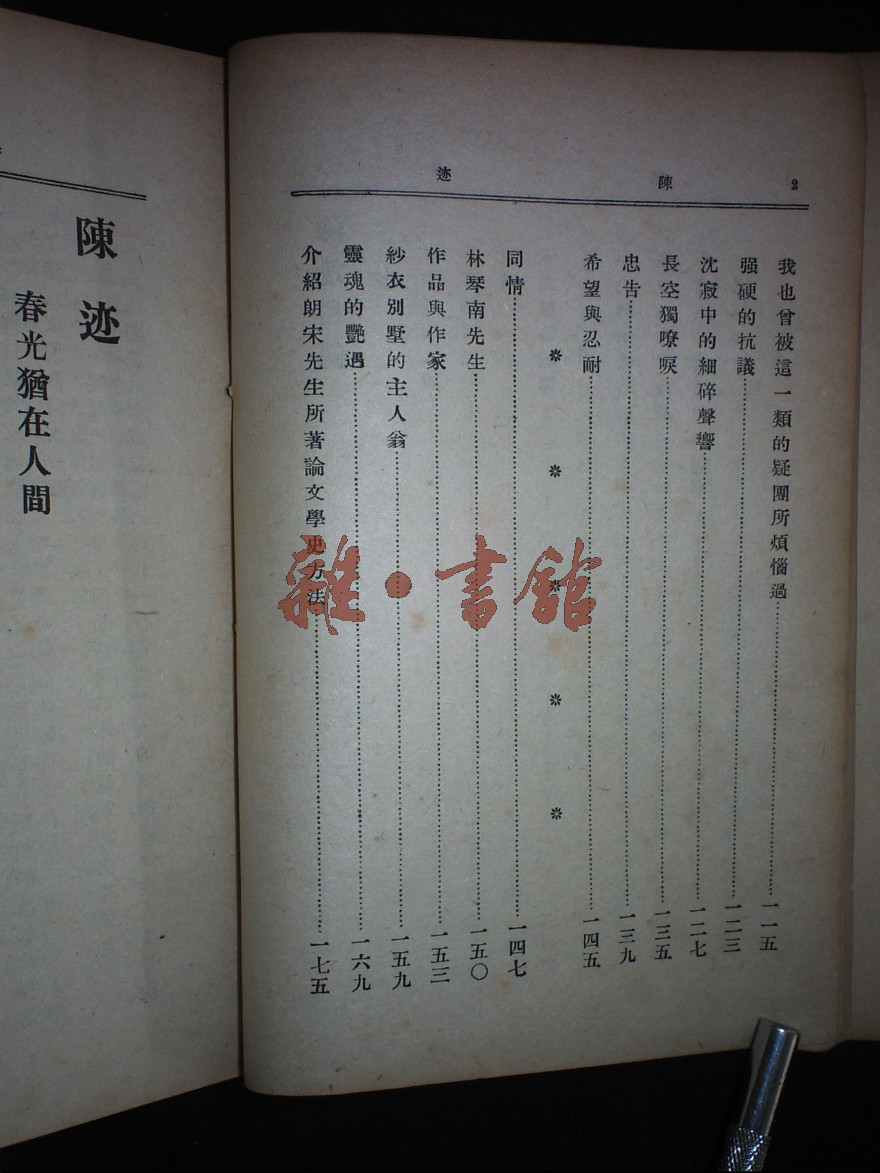 2 陳 迹
我也曾被這一類的疑團所煩惱過 一一五
强硬的抗議 一二三
沈寂中的細碎聲響 一二七
長空獨嘹唳 一三五
忠告 一三九
希望與忍耐 一四五
同情 一四七
林琴南先生 一五〇
作品與作家 一五三
紗衣別墅的主人翁 一五九
靈魂的艷遇 一六九
介紹朗宋先生所著論文學史方法 一七五
陳迹
春光猶在人間
雜·書館